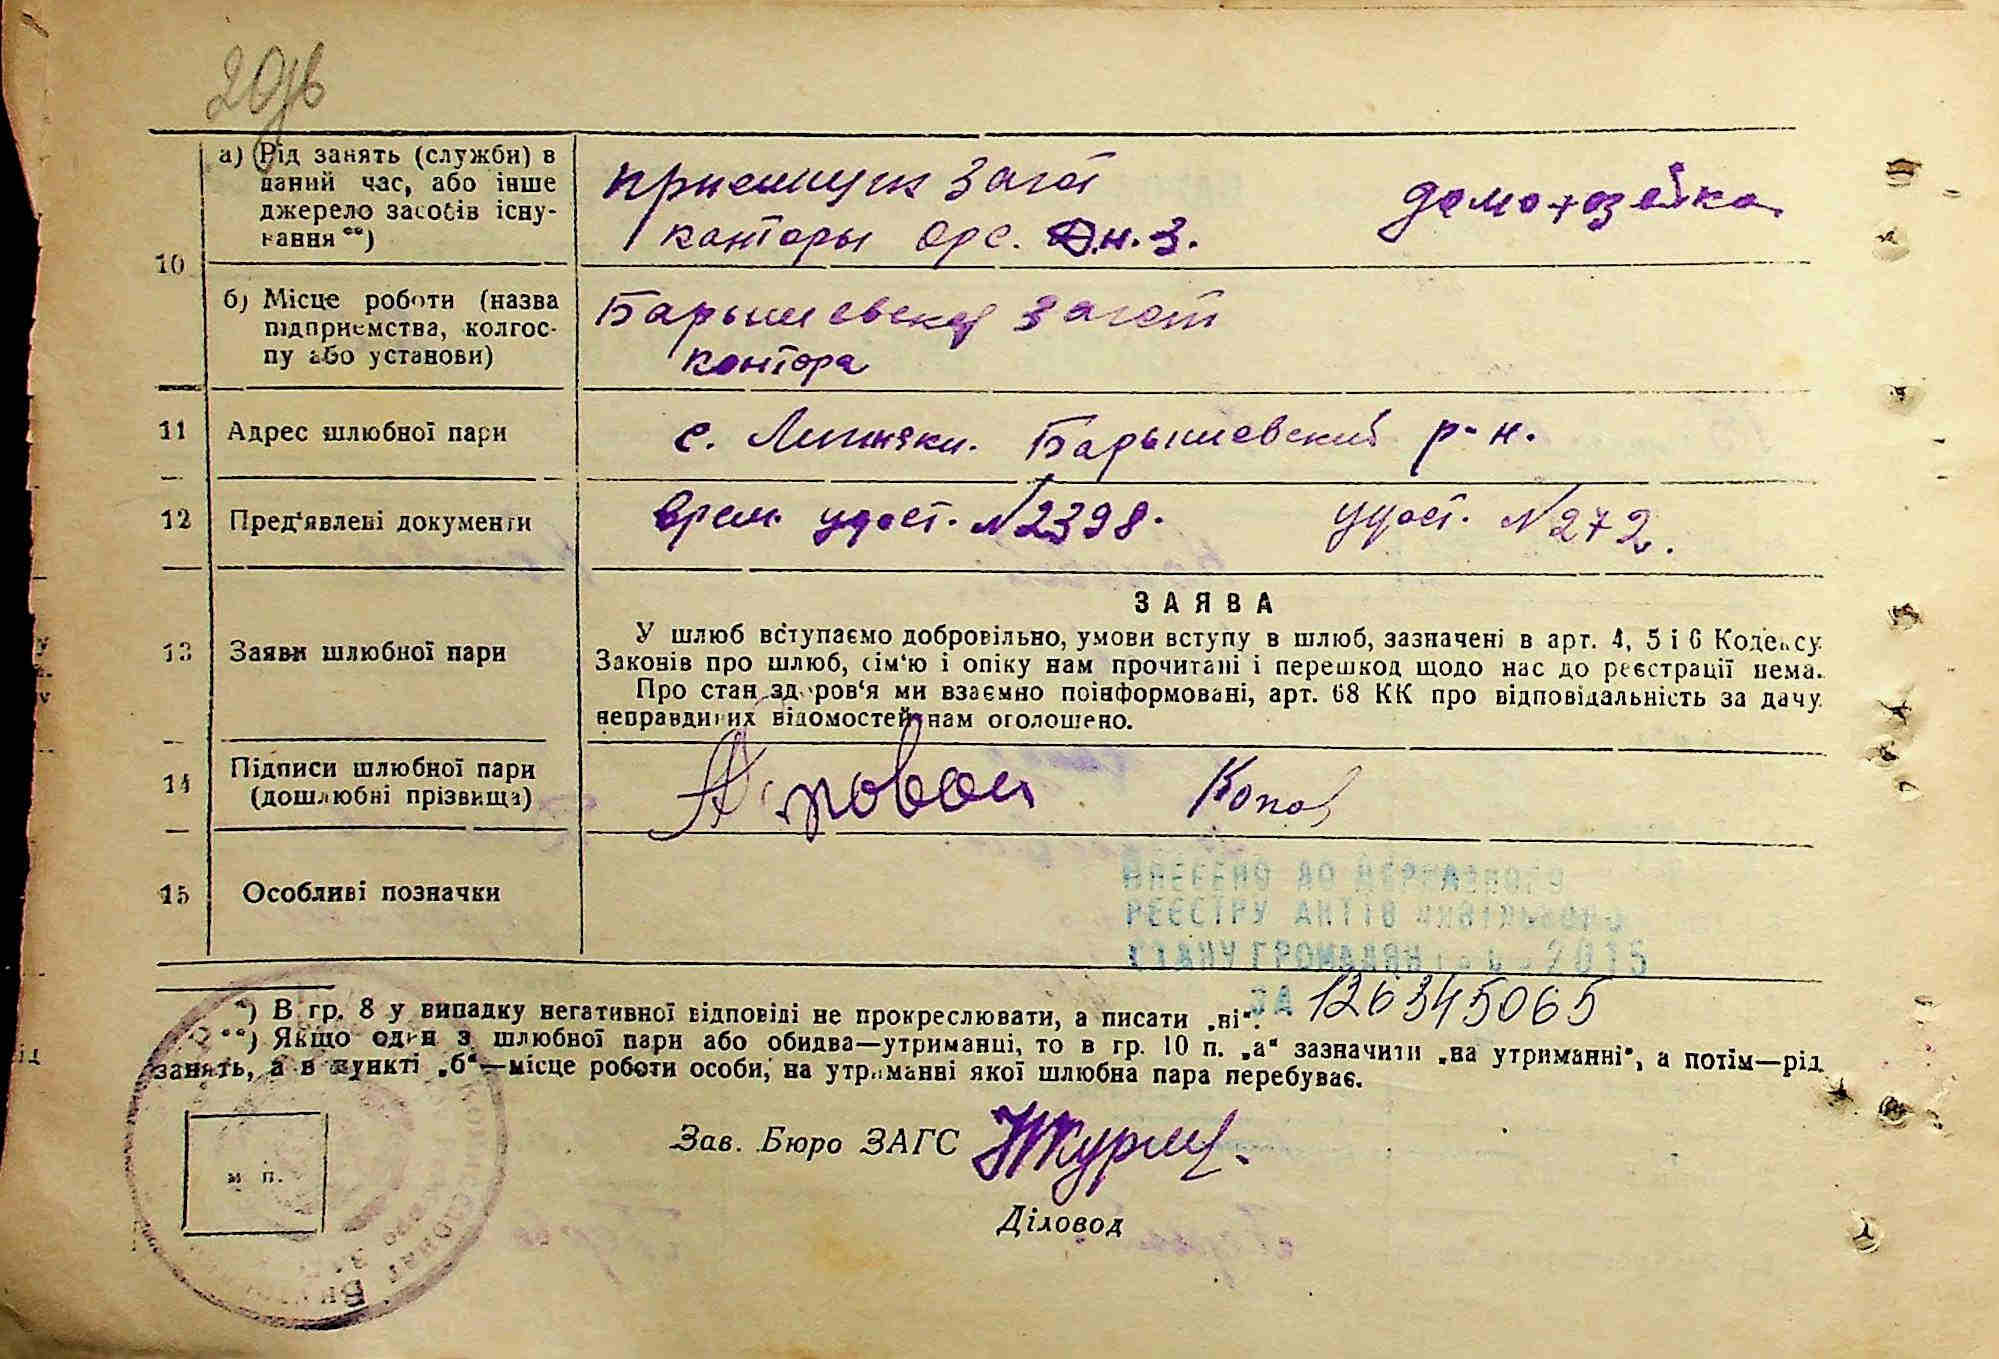 20зв
10
а) Рід занять (служби) в
даний час, або інше
джерело засобів існу-
вання**)
приемщик Загот
конторы Орс. Ю.н.З.
домохозейка
б) Місце роботи (назва
підприємства, колгос-
пу або установи)
Барышевская Загот
контора
11 Адрес шлюбної пари
с. Лихняки. Барышевский р-н.
12 Пред'явлені документи
врем. удост. №2398.
удост. №272.
13 Заяви шлюбної пари
ЗАЯВА
У шлюб вступаємо добровільно, умови вступу в шлюб, зазначені в арт. 4, 5 і 6 Кодексу
Законів про шлюб, сім'ю і опіку нам прочитані і перешкод щодо нас до реєстрації нема.
Про стан здоров'я ми взаємно поінформовані, арт. 68 КК про відповідальність за дачу
неправдивих відомостей нам оголошено.
14 Підписи шлюбної пари
(дошлюбні прізвища)
15 Особливі позначки
ВНЕСЕНО ДО ДЕРЖАВНОГО
РЕЄСТРУ АКТІВ ЦИВІЛЬНОГО
СТАНУ ГРОМАДЯН 2015
ЗА 126345065
*) В гр. 8 у випадку негативної відповіді не прокреслювати, а писати „ні“.
**) Якщо один з шлюбної пари або обидва—утриманці, то в гр. 10 п. „а“ зазначити „на утриманні“, а потім—рід
занять, а в пункті „б“—місце роботи особи, на утриманні якої шлюбна пара перебуває.
Зав. Бюро ЗАГС
м п.
Діловод